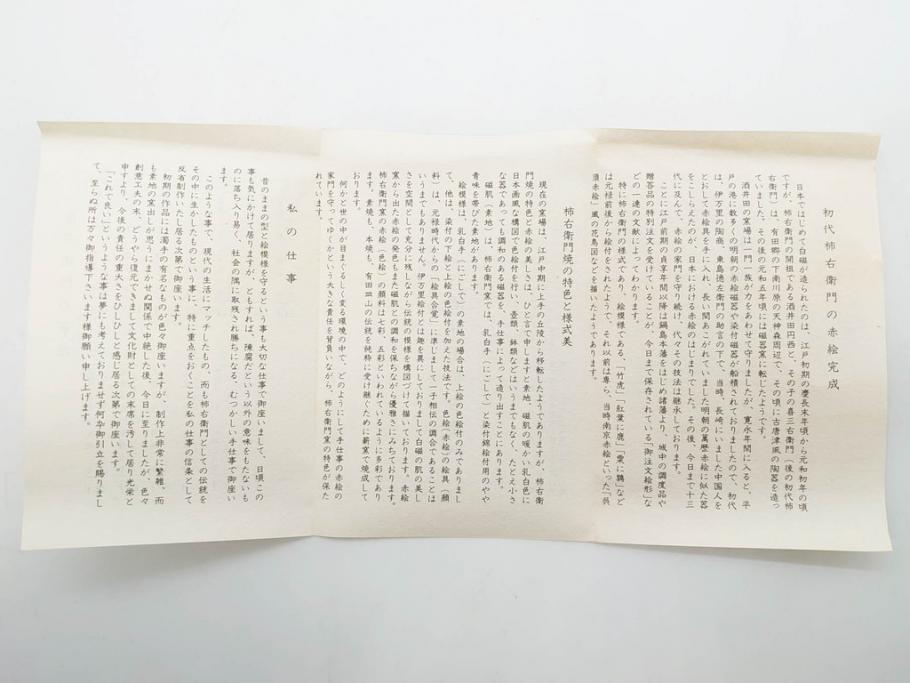 初代柿右衛門の赤絵完成
日本ではじめて白磁が造られたのは、江戸初期の慶長末年頃から元和初年の頃
ですが、柿右衛門の開祖である酒井田円西と、その子の喜三右衛門（後の初代柿
右衛門）は、有田郷の下南川原の天神森周辺で、その頃に古唐津風の陶器を造っ
ていました。その後の元和五年頃には磁器窯に転じたようです。
酒井田の窯場は一門一族が力をあわせて守りましたが、寛永年間に入ると、平
戸の港に数多くの明朝の赤絵磁器や染付磁器が船積されておりましたので、初代
とおして赤絵具を手に入れ、長い間あこがれていました明朝の萬暦赤絵に似た器
は、伊万里の陶商、東島徳左衛門の助言の下で、当時、長崎にいました中国人を
をこしらえたのが、日本における赤絵のはじまりでした。その後、今日まで十三
代に及んで、赤絵の家門を守り続け、代々その技法は継承しております。
ことに江戸前期の貞享年間以降は鍋島本藩をはじめ諸藩より、城中の調度品や
贈答品の特別注文を受けていることが、今日まで保存されている「御注文絵形」な
どの一連の文献によってわかります。
特に柿右衛門の様式であり、絵模様である、「竹虎」「紅葉に鹿」「粟に鶉」など
は元禄前後から、絵付をされたようで、それ以前は専ら、当時南京赤絵といった「呉
須赤絵」風の花鳥図などを描いたようであります。
柿右衛門焼の特色と様式美
現在の窯場は、江戸中期に上手の丘陵から移転したようでありますが、柿右衛
門焼の特色と様式の美しさは、ひと言で申しますと素地、磁肌の暖かい乳白色に
日本画風な構図で色絵付を行い、壺類、鉢類などはいうまでもなく、たとえ小さ
な器であっても調和のある磁器を、手仕事によって造り出すことにあります。
磁肌（素地）は、柿右衛門窯では、乳白手（にごしで）と染付錦絵付用のやや
青味を帯びた素地があります。
絵模様は、乳白手（にごしで）の素地の場合は、上絵の色絵付のみでありまし
て、他は、染付の下絵に上絵の色絵付を加えた技法です。色絵（赤絵）の絵具（顔
料）は、元禄時代からの「絵具合覚」に準じまして一子相伝の調合であることは
いうまでもありません。伊万里絵付とは趣を異にしておりまして白磁の肌の美し
さを空間として充分に残しながら伝統の模様を構図づけて描いております。赤絵
窯から出た赤絵の発色もまた磁肌との調和を保ちながら優雅さにみちております。
柿右衛門窯の赤絵（色絵）の顔料は七彩、五彩といわれているように多彩であり
ます。素焼も、本焼も、有田皿山の伝統を純粋に受け継ぐために薪窯で焼成して
おります。
何かと世の中が目まぐるしく変る環境の中で、どのようにして手仕事の赤絵の
家門を守ってゆくかという大きな責任を背負いながら、柿右衛門窯の特色が保た
れています。
私の仕事
昔のままの型と絵模様を守るという事も大切な仕事で御座いまして、日頃この
事も気にかけて居りますが、ともすれば、陳腐だという以外の意味をもたないも
のに落ち入り易く、社会の隅に取残され勝ちになる、むつかしい手仕事で御座い
ます。
このような事で、現代の生活にマッチしたもの、而も柿右衛門としての伝統を
その中に生かしたものという事に、特に重点をおくことを私の仕事の信条として
反省制作いたし居る次第で御座います。
初期の作品には濁手の有名なものが色々御座いますが、制作上非常に繁雑、而
も素地の窯出しが思うにまかせぬ関係で中絶した後、今日に至りましたが、色々
創意工夫の末、どうやら復元できまして文化財としての末席を汚して居り光栄と
申すより、今後の責任の重大さをひしひしと感じ居る次第で御座います。
「これで良い」というような事は夢にも考えておりませず何卒御引立を賜りまし
て、至らぬ所は万々御指導下さいます様御願い申し上げます。